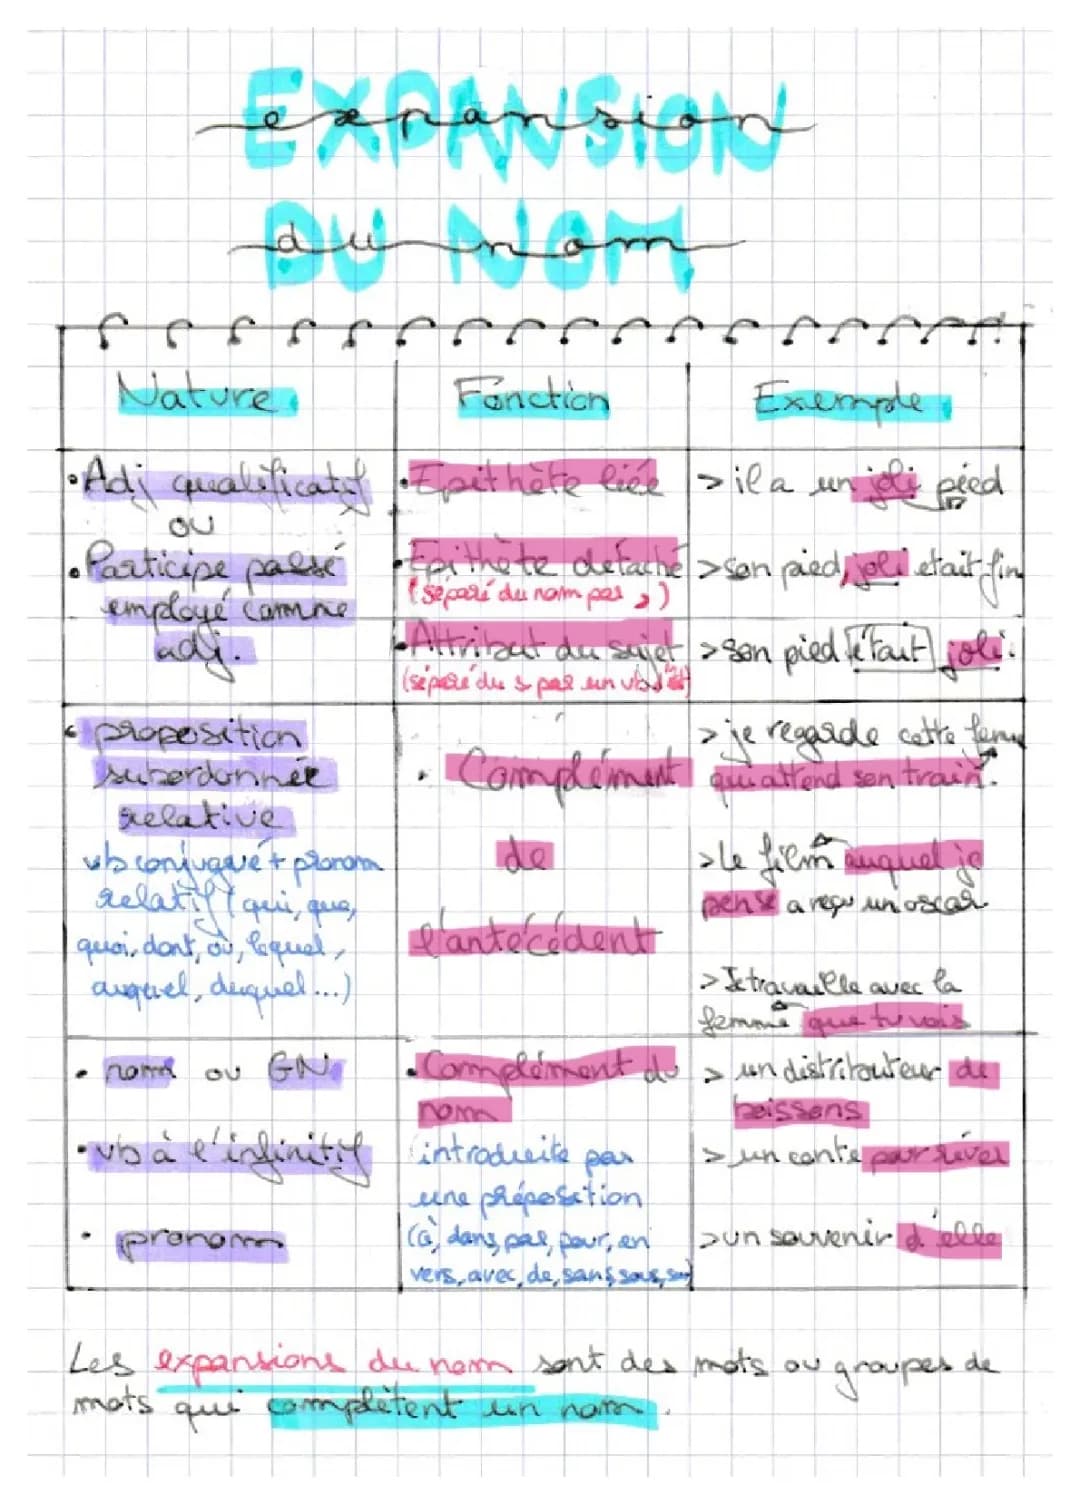 EXPANSION
expansion
DU NOM
du nom
Nature
Fonction
Exemple
• Adj qualificatif
ou
• Participe passé
employé comme
adj.
• Epithète liée
• Epithète détaché
(séparé du nom par , )
• Attribut du sujet
(séparé du s par un vb d'
> il a un joli pied
> son pied, joli etait fin
> son pied était joli.
• proposition
subordonnée
relative
vb conjugué + pronom
relatif (qui, que,
quoi, dont, où, lequel,
auquel, duquel...)
• Complément
de
l'antécédent
> je regarde cette femme
qui attend son train.
> Le film auquel je
pense a reçu un oscar
> Je travaille avec la
femme que tu vois
• nom ou GN
• vb à l'infinitif
• pronom
• Complément du
nom
introduite par
une préposition
(à, dans, par, pour, en
vers, avec, de, sans, sous, sur)
> un distributeur de
boissons
> un conte pour rêver
> un souvenir d'elle
Les expansions du nom sont des mots ou groupes de
mots qui complètent un nom.